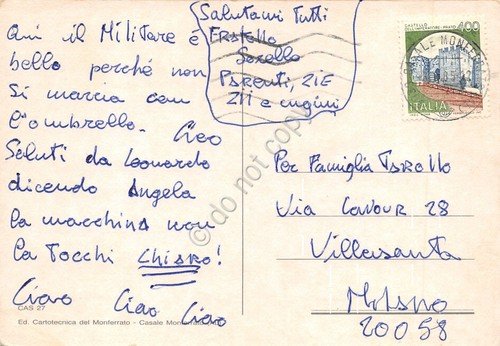 Qui il Militare é
bello perché non
Si marcia con
l'ombrello. Ciao
Saluti da Leonardo
dicendo Angela
la macchina non
la Tocchi CHIARO!
Ciao Ciao Ciao
Salutami Tutti
Fratello
Sorella
PARENTI, ZIE
ZII e cugini
400
CASTELLO
CASALE MONF
ITALIA
Per Famiglia
Via Cavour 28
Villasanta
Milano
20058
do not copy
CAS 27
Ed. Cartotecnica del Monferrato - Casale Monferrato